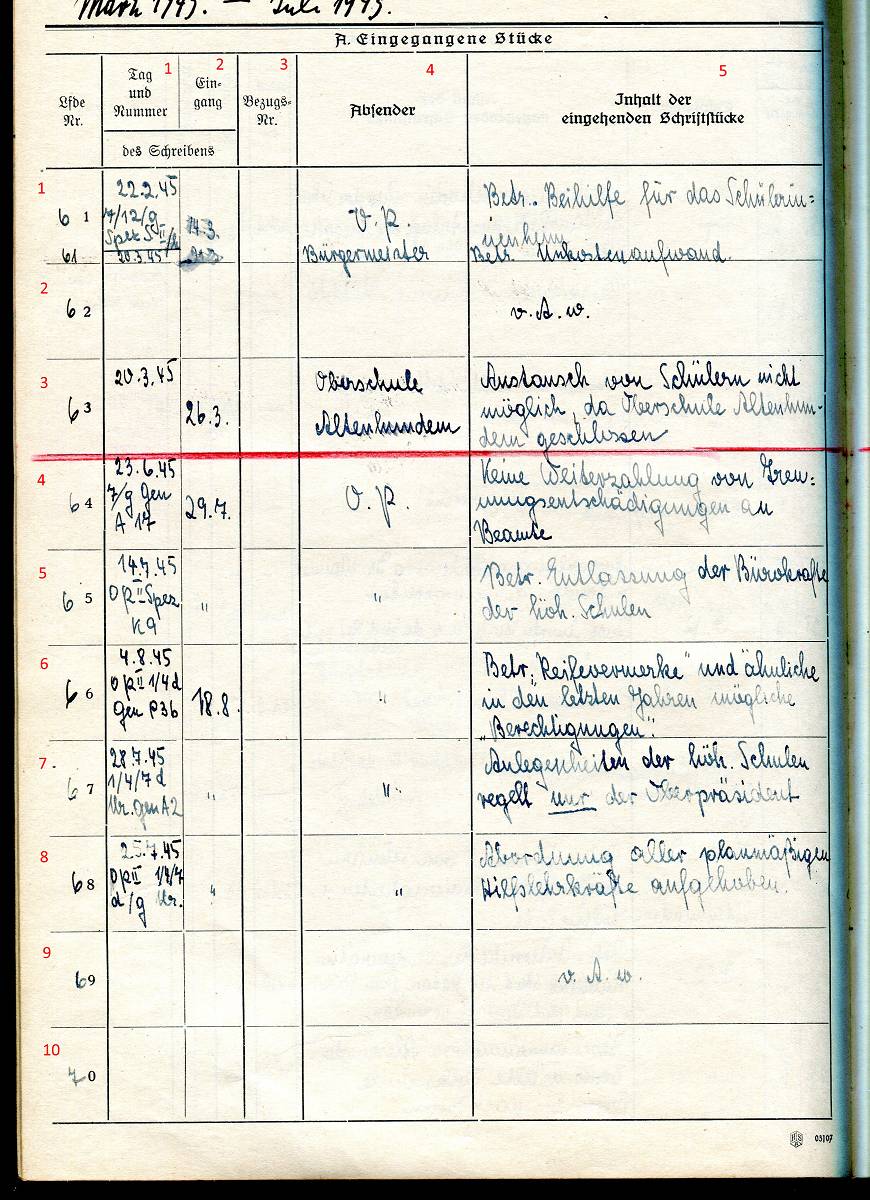 März 1945. — Juli 1945.
A. Eingegangene Stücke
Lfde Nr.
Tag und Nummer 1
Ein-gang 2
des Schreibens
Bezugs-Nr. 3
Absender 4
Inhalt der 5
eingehenden Schriftstücke
1
61 22.2.45 14.3. O.P. Betr. Beihilfe für das Schülerin=
7/12/g nenheim
61 20.3.45 Bürgermeister Betr. Unkostenaufwand.
2
62 v. A. w.
3
63 20.3.45 26.3. Oberschule Austausch von Schülern nicht
Altenhundem möglich, da Oberschule Altenhun-
dem geschlossen
4
64 23.6.45 29.7. O.P. Keine Weiterzahlung von Tren=
7/g Gen nungsentschädigungen an
A 17 Beamte
5
65 14.7.45 " " Betr. Entlassung der Bürokräfte
O P II Spez der höh. Schulen
K9
6
66 4.8.45 18.8. " Betr. „Reifevermerke" und ähnliche
O P II 1/4 d in den letzten Jahren mögliche
Gen P3b „Berechtigungen".
7
67 28.7.45 " " Anlegenheiten der höh. Schulen
1/4/7 d regelt nur der Oberpräsident
Ur. gen A2
8
68 25.7.45 " " Abordnung aller planmäßigen
O P II 1/4/7 Hilfslehrkräfte aufgehoben.
d/g Ur.
9
69 v. A. w.
10
70
03107